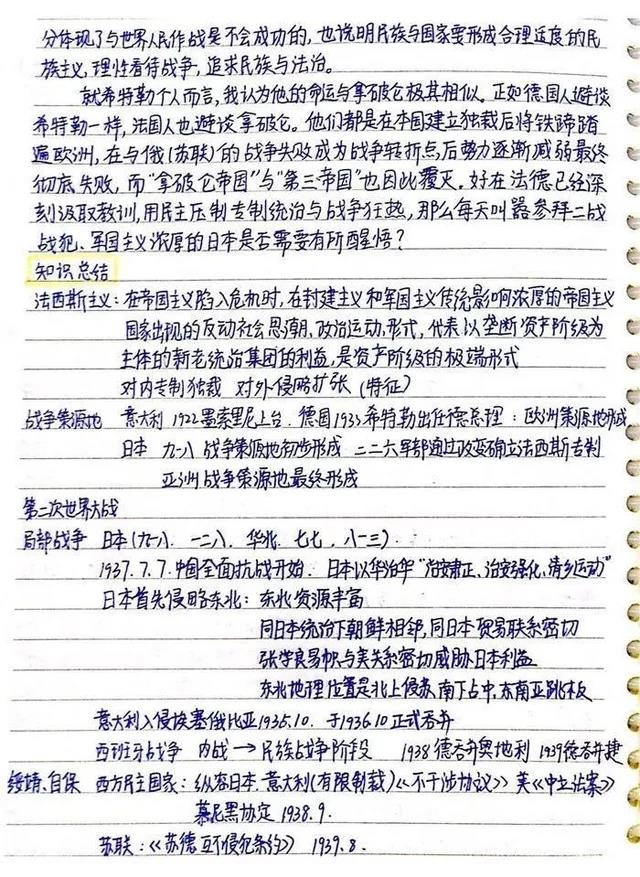 分体现了与世界人民作战是不会成功的，也说明民族与国家要形成合理适度的民
族主义，理性看待战争，追求民族与法治。
就希特勒个人而言，我认为他的命运与拿破仑极其相似。正如德国人避谈
希特勒一样，法国人也避谈拿破仑。他们都是在本国建立独裁后将铁蹄踏
遍欧洲，在与俄(苏联)的战争失败成为战争转折点后势力逐渐减弱最终
彻底失败，而“拿破仑帝国”与“第三帝国”也因此覆灭。好在法德已经深
刻汲取教训，用民主压制专制统治与战争狂热，那么每天叫嚣参拜二战
战犯、军国主义浓厚的日本是否需要有所醒悟？
知识总结
法西斯主义：在帝国主义陷入危机时，在封建主义和军国主义传统影响浓厚的帝国主义
国家出现的反动社会思潮，政治运动，形式，代表以垄断资产阶级为
主体的新老统治集团的利益，是资产阶级的极端形式
对内专制独裁 对外侵略扩张 (特征)
战争策源地 意大利 1922墨索里尼上台. 德国1933希特勒出任德总理：欧洲策源地形成
日本 九一八 战争策源地初步形成 二二六军部通过政变确立法西斯专制
亚洲战争策源地最终形成
第二次世界大战
局部战争 日本(九一八. 一二八. 华北. 七七. 八一三).
1937.7.7.中国全面抗战开始. 日本以华治华“治安肃正、治安强化、清乡运动”
日本首先侵略东北：东北资源丰富
同日本统治下朝鲜相邻，同日本贸易联系密切
张学良易帜与美关系密切威胁日本利益
东北地理位置是北上侵苏，南下占中，东南亚跳板
意大利入侵埃塞俄比亚1935.10. 于1936.10正式吞并
西班牙战争 内战→民族战争阶段 1938德吞并奥地利 1939德吞并捷
绥靖、自保 西方民主国家：纵容日本. 意大利(有限制裁)《不干涉协议》 美《中立法案》
慕尼黑协定 1938.9.
苏联：《苏德互不侵犯条约》 1939.8.